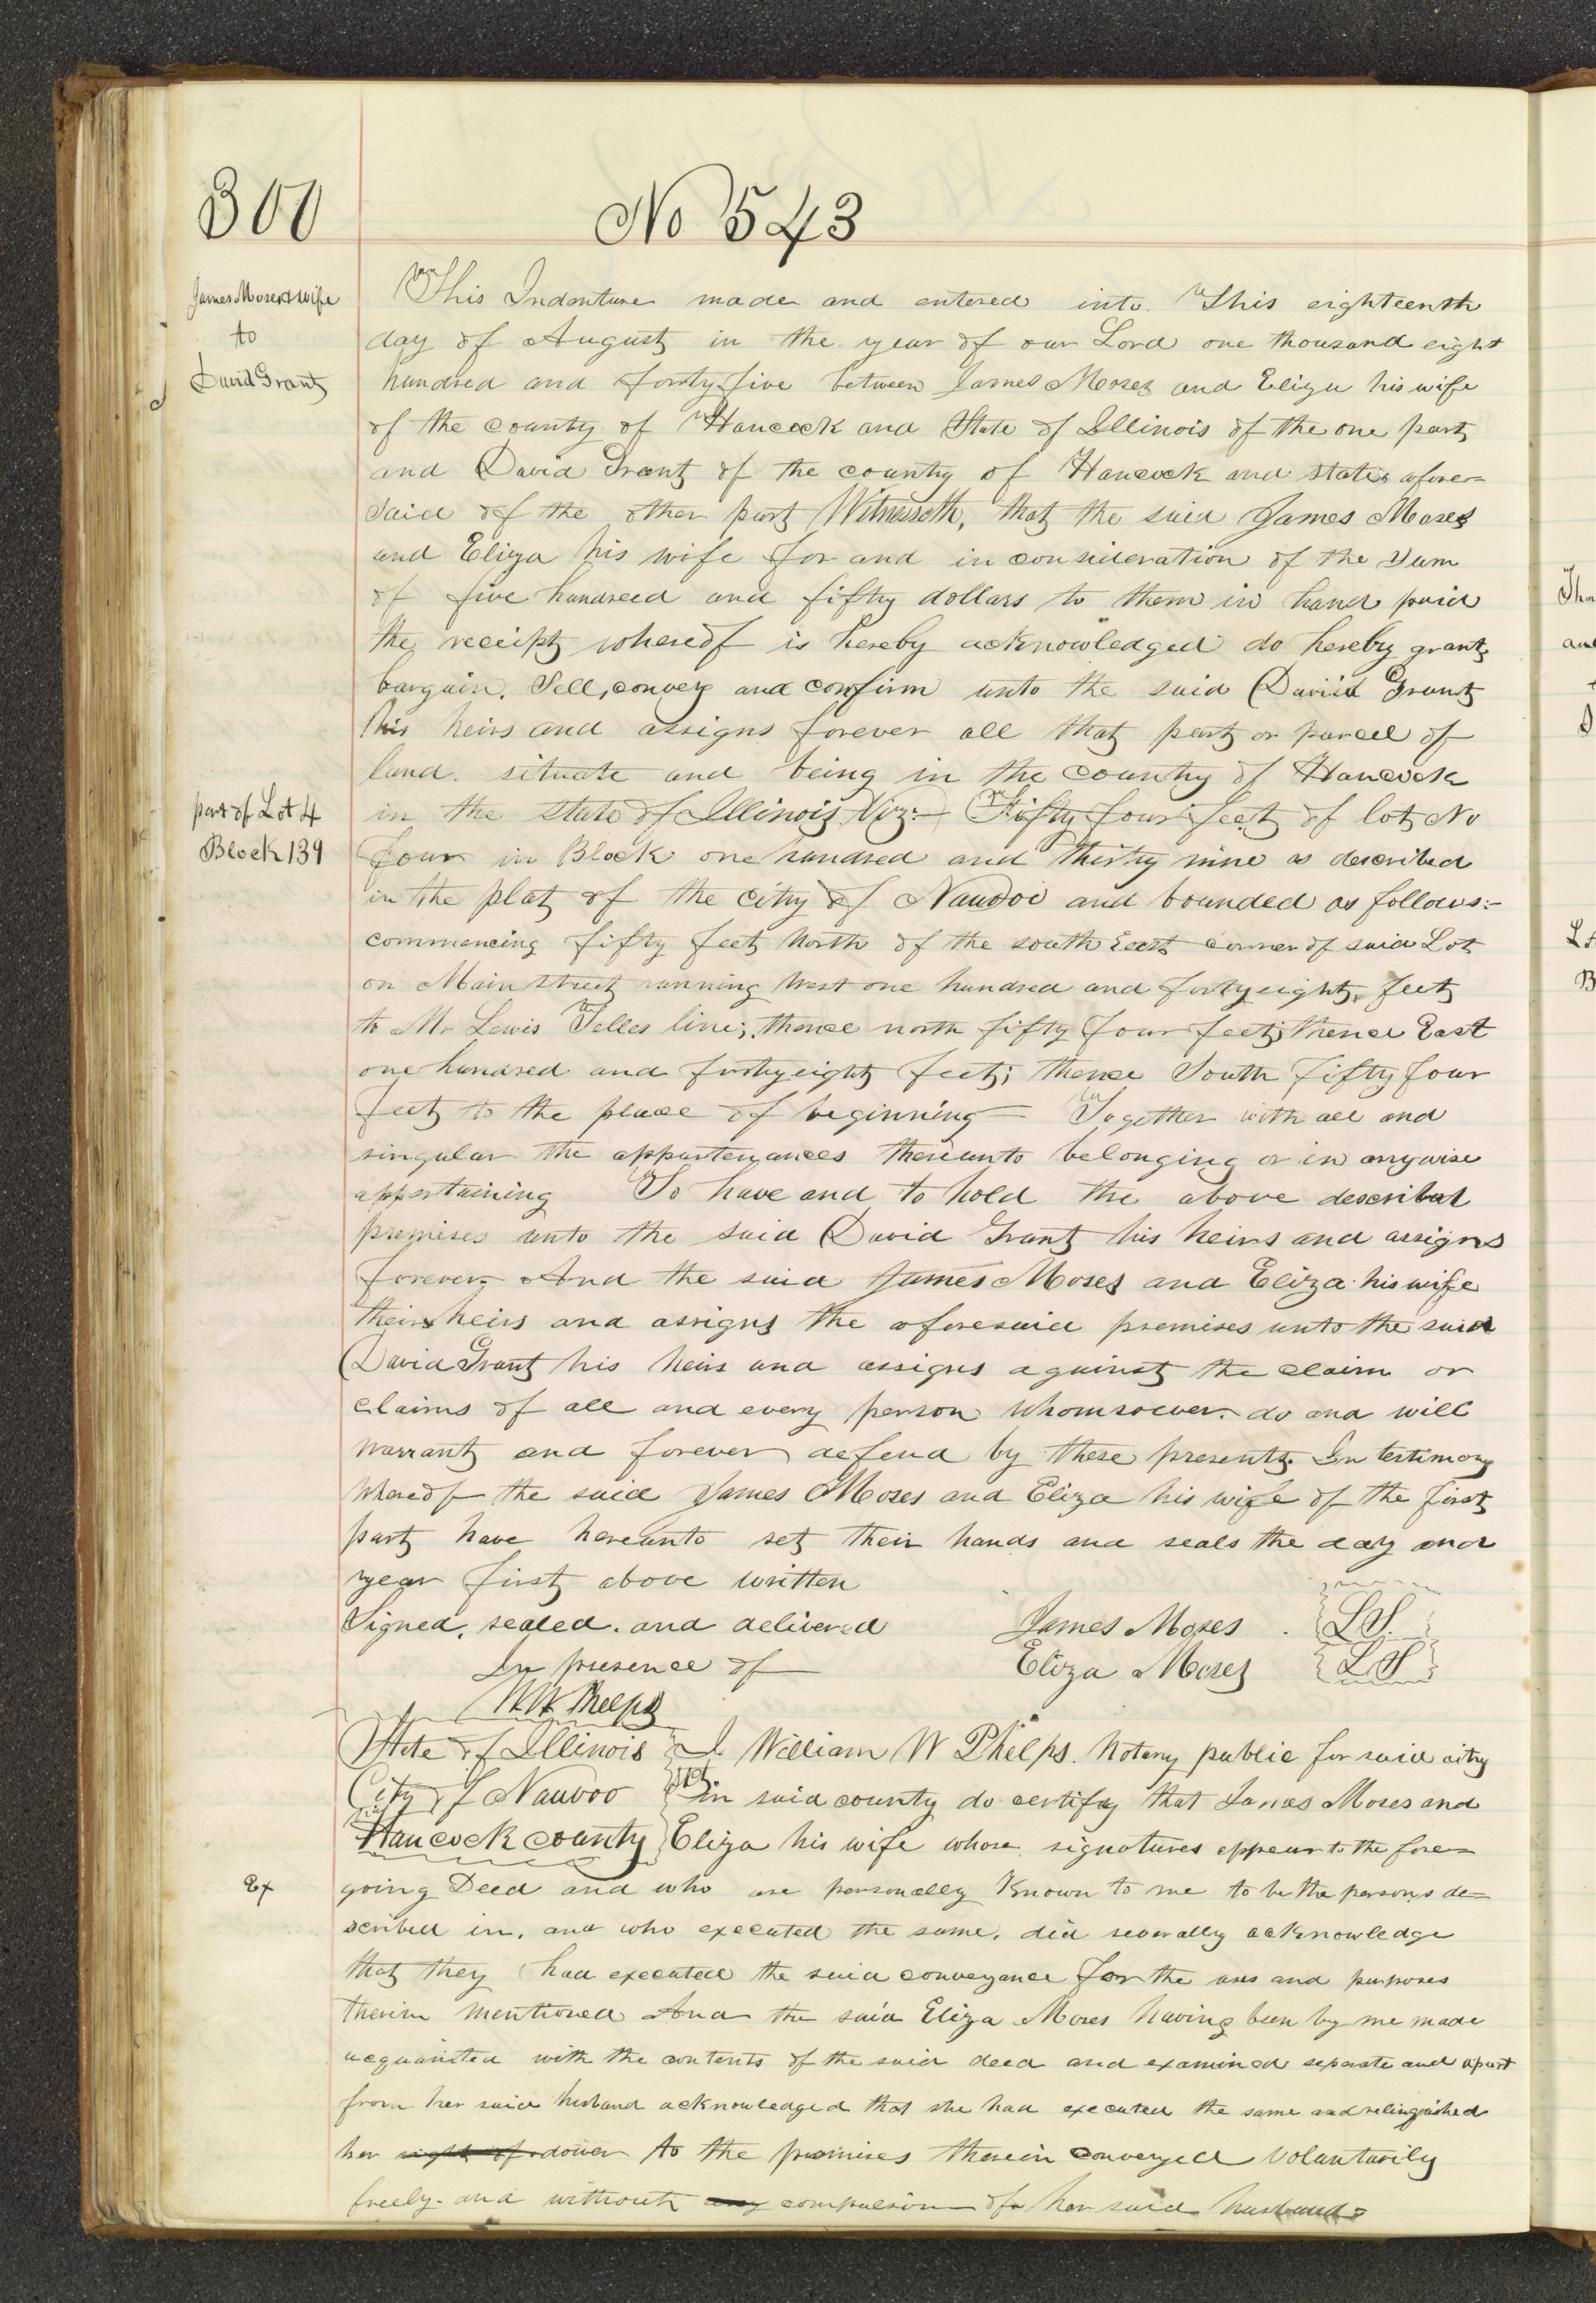 300
No 543
James Moses & wife
to
David Grant
This Indenture made and entered into This eighteenth
day of August in the year of our Lord one thousand eight
hundred and forty five between James Moses and Eliza his wife
of the county of Hancock and State of Illinois of the one part
and David Grant of the county of Hancock and state afore=
said of the other part Witnesseth, that the said James Moses
and Eliza his wife for and in consideration of the sum
of five hundreed and fifty dollars to them in hand paid
the receipt whereof is hereby acknowledged do hereby grant
bargain, Sell, convey and confirm unto the said David Grant
his heirs and assigns forever all that part or parcel of
land situate and being in the county of Hancock
part of Lot 4
Block 139
in the state of Illinois Viz:— Fifty four feet of lot No
four in Block one hundred and thirty nine as described
in the plat of the city of Nauvoo and bounded as follows:-
commencing fifty feet North of the south East corner of said Lot
on Main street running West one hundred and forty eight feet
to Mr Lewis Telles line; thence north fifty four feet; thence East
one hundred and forty eight feet; thence South fifty four
feet to the place of beginning — Together with all and
singular the appurtenances thereunto belonging or in anywise
appertaining To have and to hold the above described
premises unto the said David Grant his heirs and assigns
forever. And the said James Moses and Eliza his wife
their heirs and assigns the aforesaid premises unto the said
David Grant his heirs and assigns against the claim or
claims of all and every person whomsoever. do and will
warrant and forever defend by these presents. In testimony
whereof the said James Moses and Eliza his wife of the first
part have hereunto set their hands and seals the day and
year first above written
Signed, sealed. and delivered James Moses . L.S.
In presence of Eliza Moses L S
W W Phelps
State of Illinois I William W Phelps. Notary public for said city
City of Nauvoo in said county do certify that James Moses and
Hancock county Eliza his wife whose signatures appear to the fore=
Ex
going Deed and who are personally known to me to be the persons de=
scribed in, and who executed the same, did severally acknowledge
that they had executed the said conveyance for the uses and purposes
therein mentioned And the said Eliza Moses having been by me made
acquainted with the contents of the said deed and examined separate and apart
from her said husband acknowledged that she had executed the same and relinquished
her right of dower to the premises therein conveyed voluntarily
freely and without any compulsion of her said husband=